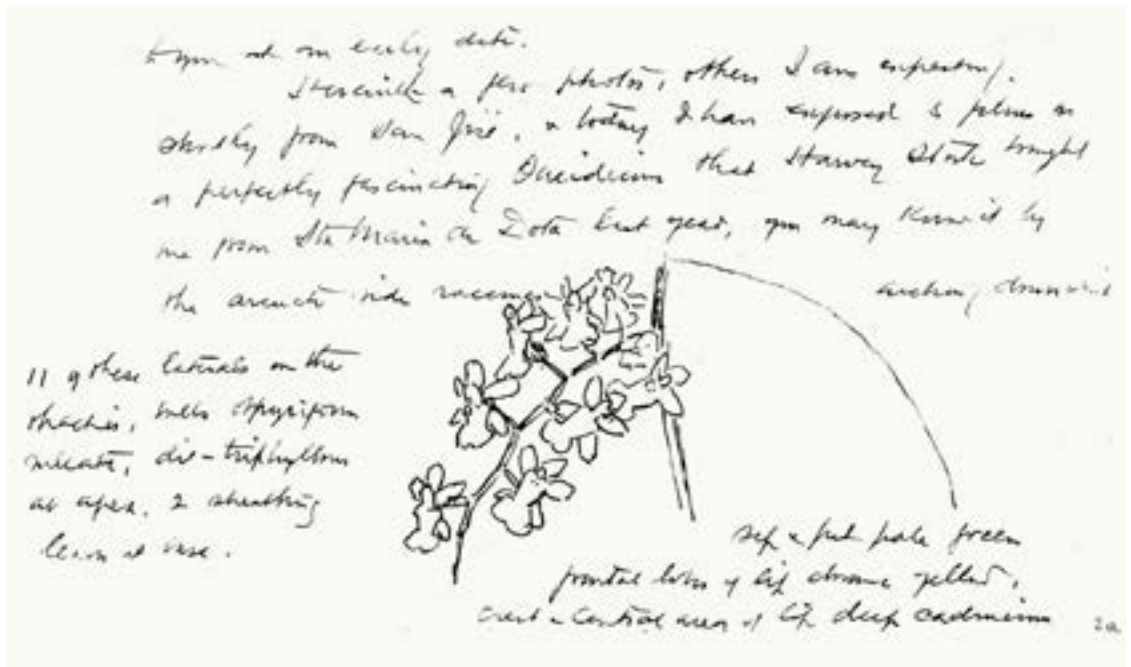 to you at an early date.
Herewith a few photos, others I am expecting
shortly from San José, & today I have exposed 2 films
a perfectly fascinating Oncidium that Harvey Stork brought
me from Sta Maria de Dota last year, you may know it by
the arcuate side racemes
arching downward
11 of these laterals on the
rhachis, bulbs
sulcate, di-triphyllous
at apex, 2 sheathing
leaves at base.
sep & pet pale green
frontal lobe of lip chrome yellow,
crest & central area of lip deep cadmium
2a